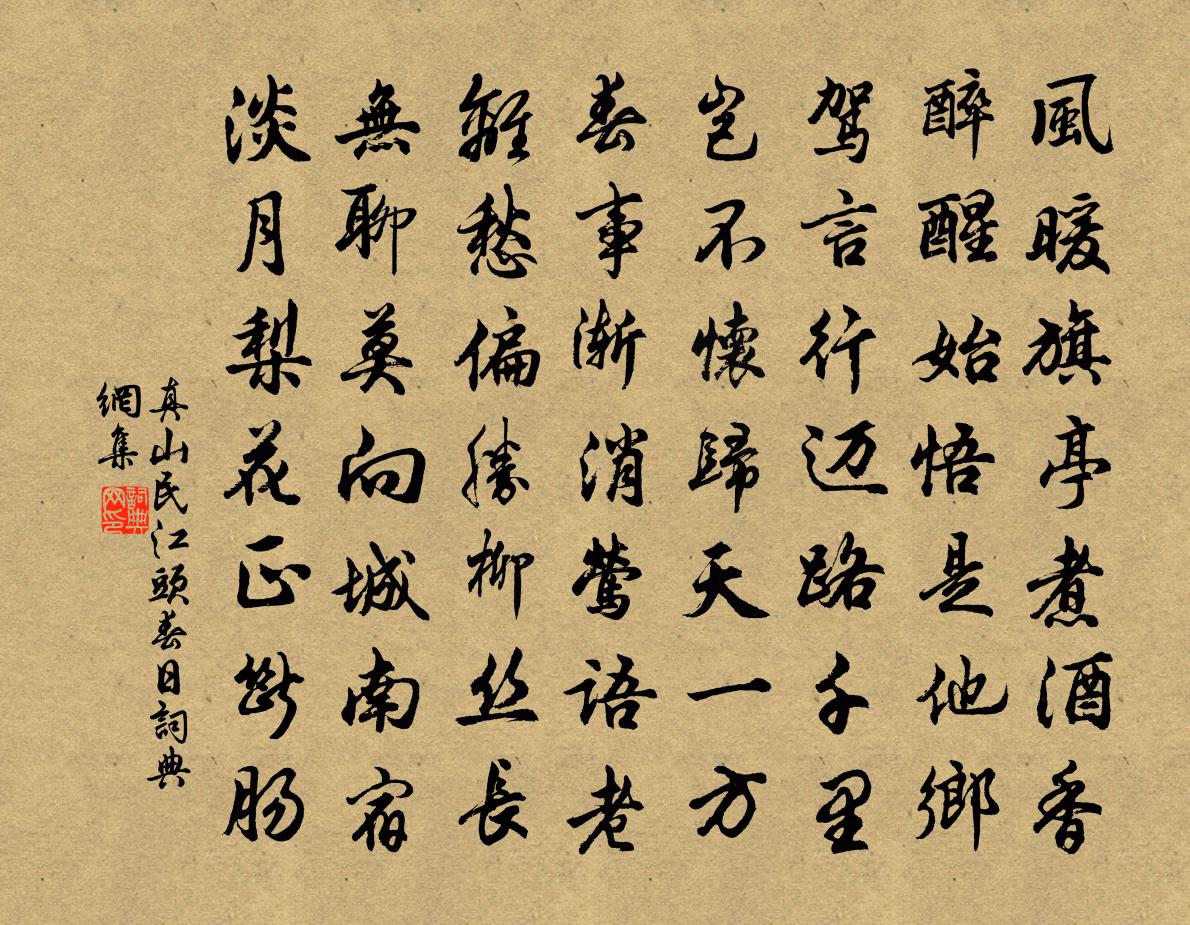 風暖旗亭煮酒香
醉醒始悟是他鄉
駕言行迈路千里
岂不懷歸天一方
春事渐消莺語老
離愁偏勝柳丝長
無聊莫向城南宿
淡月梨花正斷肠
真山民江頭春日詞典
網集
詞典
网印